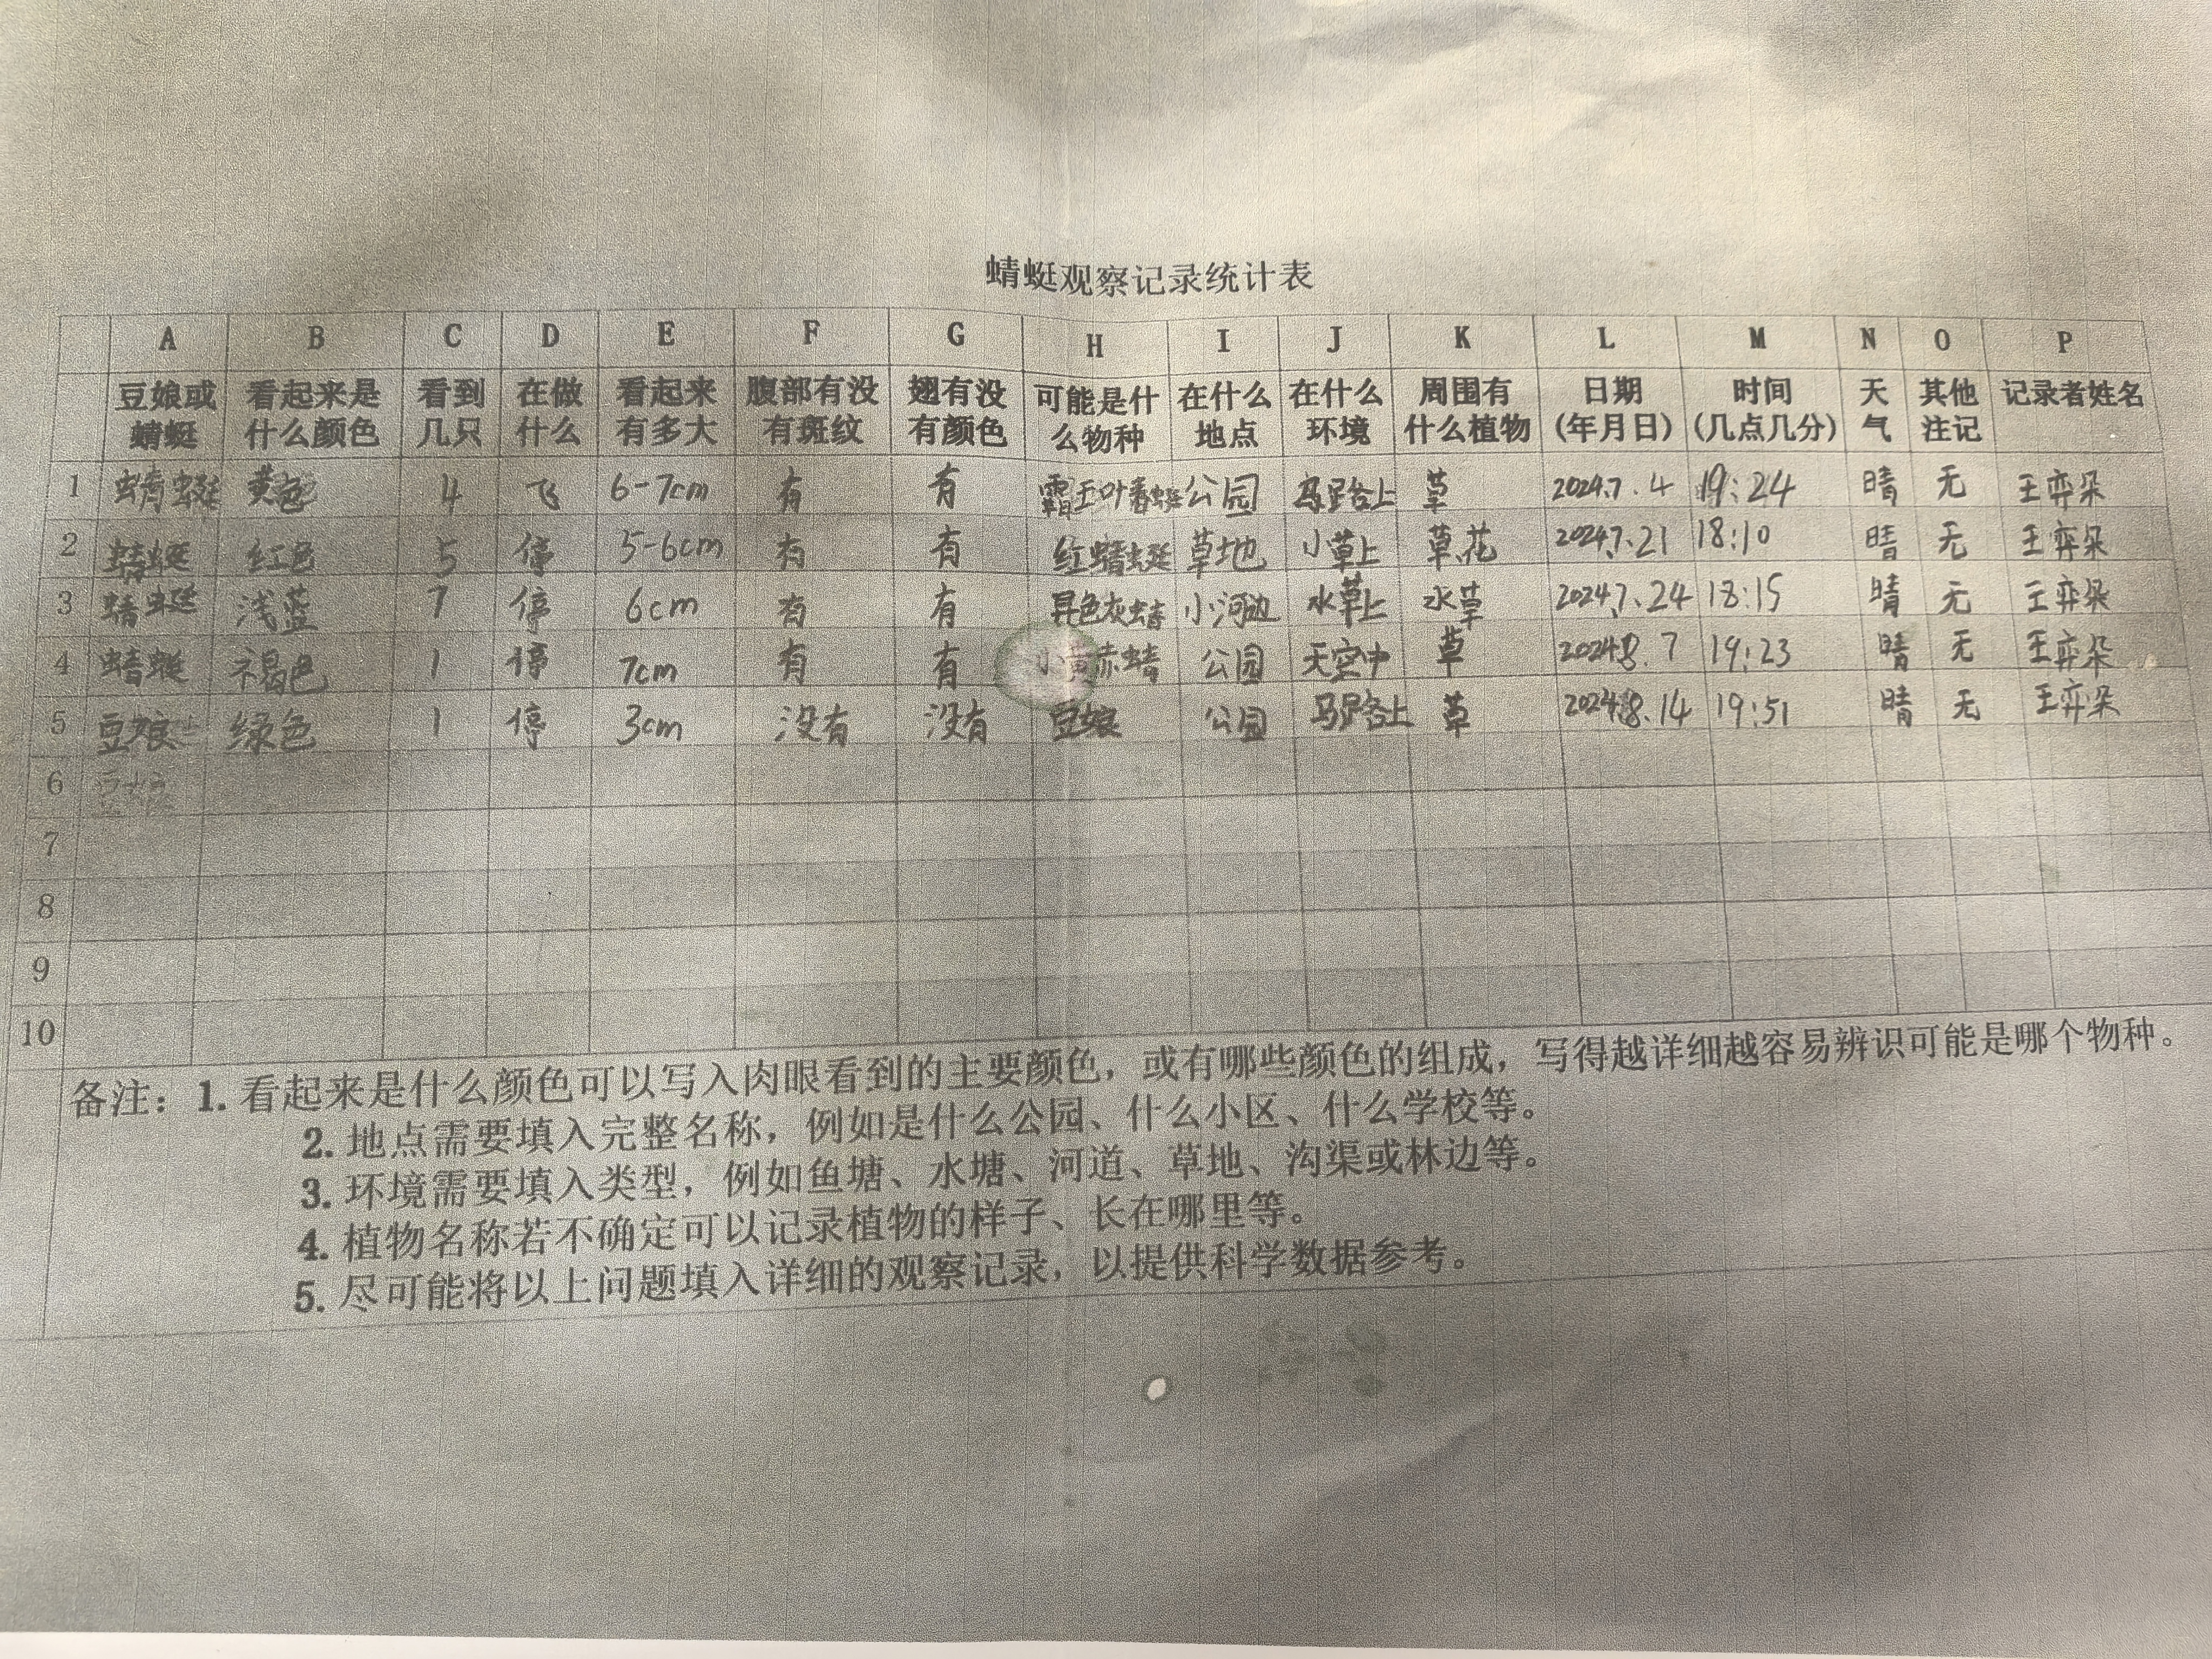 蜻蜓观察记录统计表
A B C D E F G H I J K L M N O P
豆娘或蜻蜓 看起来是什么颜色 看到几只 在做什么 看起来有多大 腹部有没有斑纹 翅有没有颜色 可能是什么物种 在什么地点 在什么环境 周围有什么植物 日期(年月日) 时间(几点几分) 天气 其他注记 记录者姓名
1 蜻蜓 黄色 4 飞 6-7cm 有 有 霸王叶春蜓 公园 马路上 草 2024.7.4 19:24 晴 无 王弈朵
2 蜻蜓 红色 5 停 5-6cm 有 有 红蜻蜓 草地 小草上 草、花 2024.7.21 18:10 晴 无 王弈朵
3 蜻蜓 浅蓝 7 停 6cm 有 有 异色灰蜻 小河边 水草上 水草 2024.7.24 18:15 晴 无 王弈朵
4 蜻蜓 褐色 1 停 7cm 有 有 小黄赤蜻 公园 天空中 草 2024.8.7 19:23 晴 无 王弈朵
5 豆娘 绿色 1 停 3cm 没有 没有 豆娘 公园 马路上 草 2024.8.14 19:51 晴 无 王弈朵
6 豆娘
7
8
9
10
备注：1. 看起来是什么颜色可以写入肉眼看到的主要颜色，或有哪些颜色的组成，写得越详细越容易辨识可能是哪个物种。
2. 地点需要填入完整名称，例如是什么公园、什么小区、什么学校等。
3. 环境需要填入类型，例如鱼塘、水塘、河道、草地、沟渠或林边等。
4. 植物名称若不确定可以记录植物的样子、长在哪里等。
5. 尽可能将以上问题填入详细的观察记录，以提供科学数据参考。